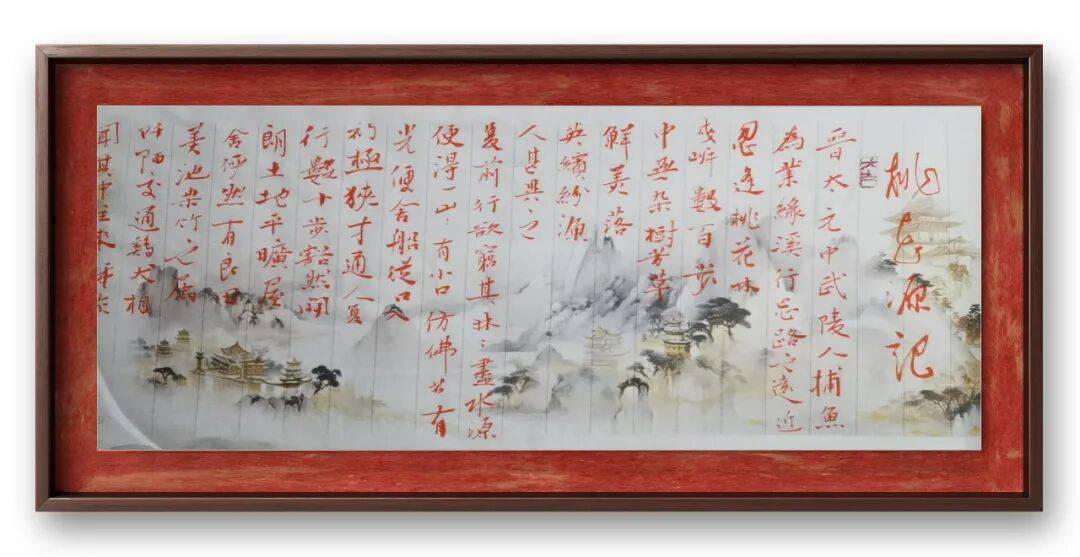 桃花源记
晋太元中武陵人捕魚
為業緣溪行忘路之遠近
忽逢桃花林
夾岸數百步
中無杂樹芳草
鮮美落
英繽紛漁
人甚異之
复前行欲窮其林〻盡水源
便得一山〻有小口仿佛若有
光便舍船從口入
初極狹才通人复
行數十步豁然開
朗土地平曠屋
舍儼然有良田
美池桑竹之屬
阡陌交通鷄犬相
聞其中往來種作